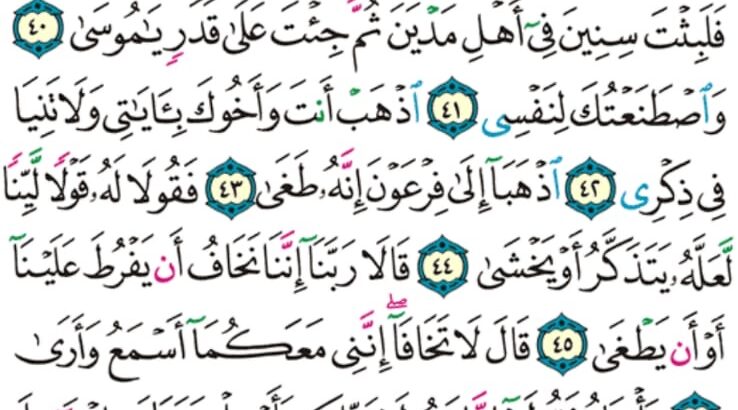 فَلَبِثْتَ سِنِينَ فِىٓ أَهْلِ مَدْيَنَ ثُمَّ جِئْتَ عَلَىٰ قَدَرٍ يَٰمُوسَىٰ ٤٠
وَٱصْطَنَعْتُكَ لِنَفْسِى ٤١ ٱذْهَبْ أَنتَ وَأَخُوكَ بِـَٔايَٰتِى وَلَا تَنِيَا
فِى ذِكْرِى ٤٢ ٱذْهَبَآ إِلَىٰ فِرْعَوْنَ إِنَّهُۥ طَغَىٰ ٤٣ فَقُولَا لَهُۥ قَوْلًا لَّيِّنًا
لَّعَلَّهُۥ يَتَذَكَّرُ أَوْ يَخْشَىٰ ٤٤ قَالَا رَبَّنَآ إِنَّنَا نَخَافُ أَن يَفْرُطَ عَلَيْنَآ
أَوْ أَن يَطْغَىٰ ٤٥ قَالَ لَا تَخَافَآ ۖ إِنَّنِى مَعَكُمَآ أَسْمَعُ وَأَرَىٰ